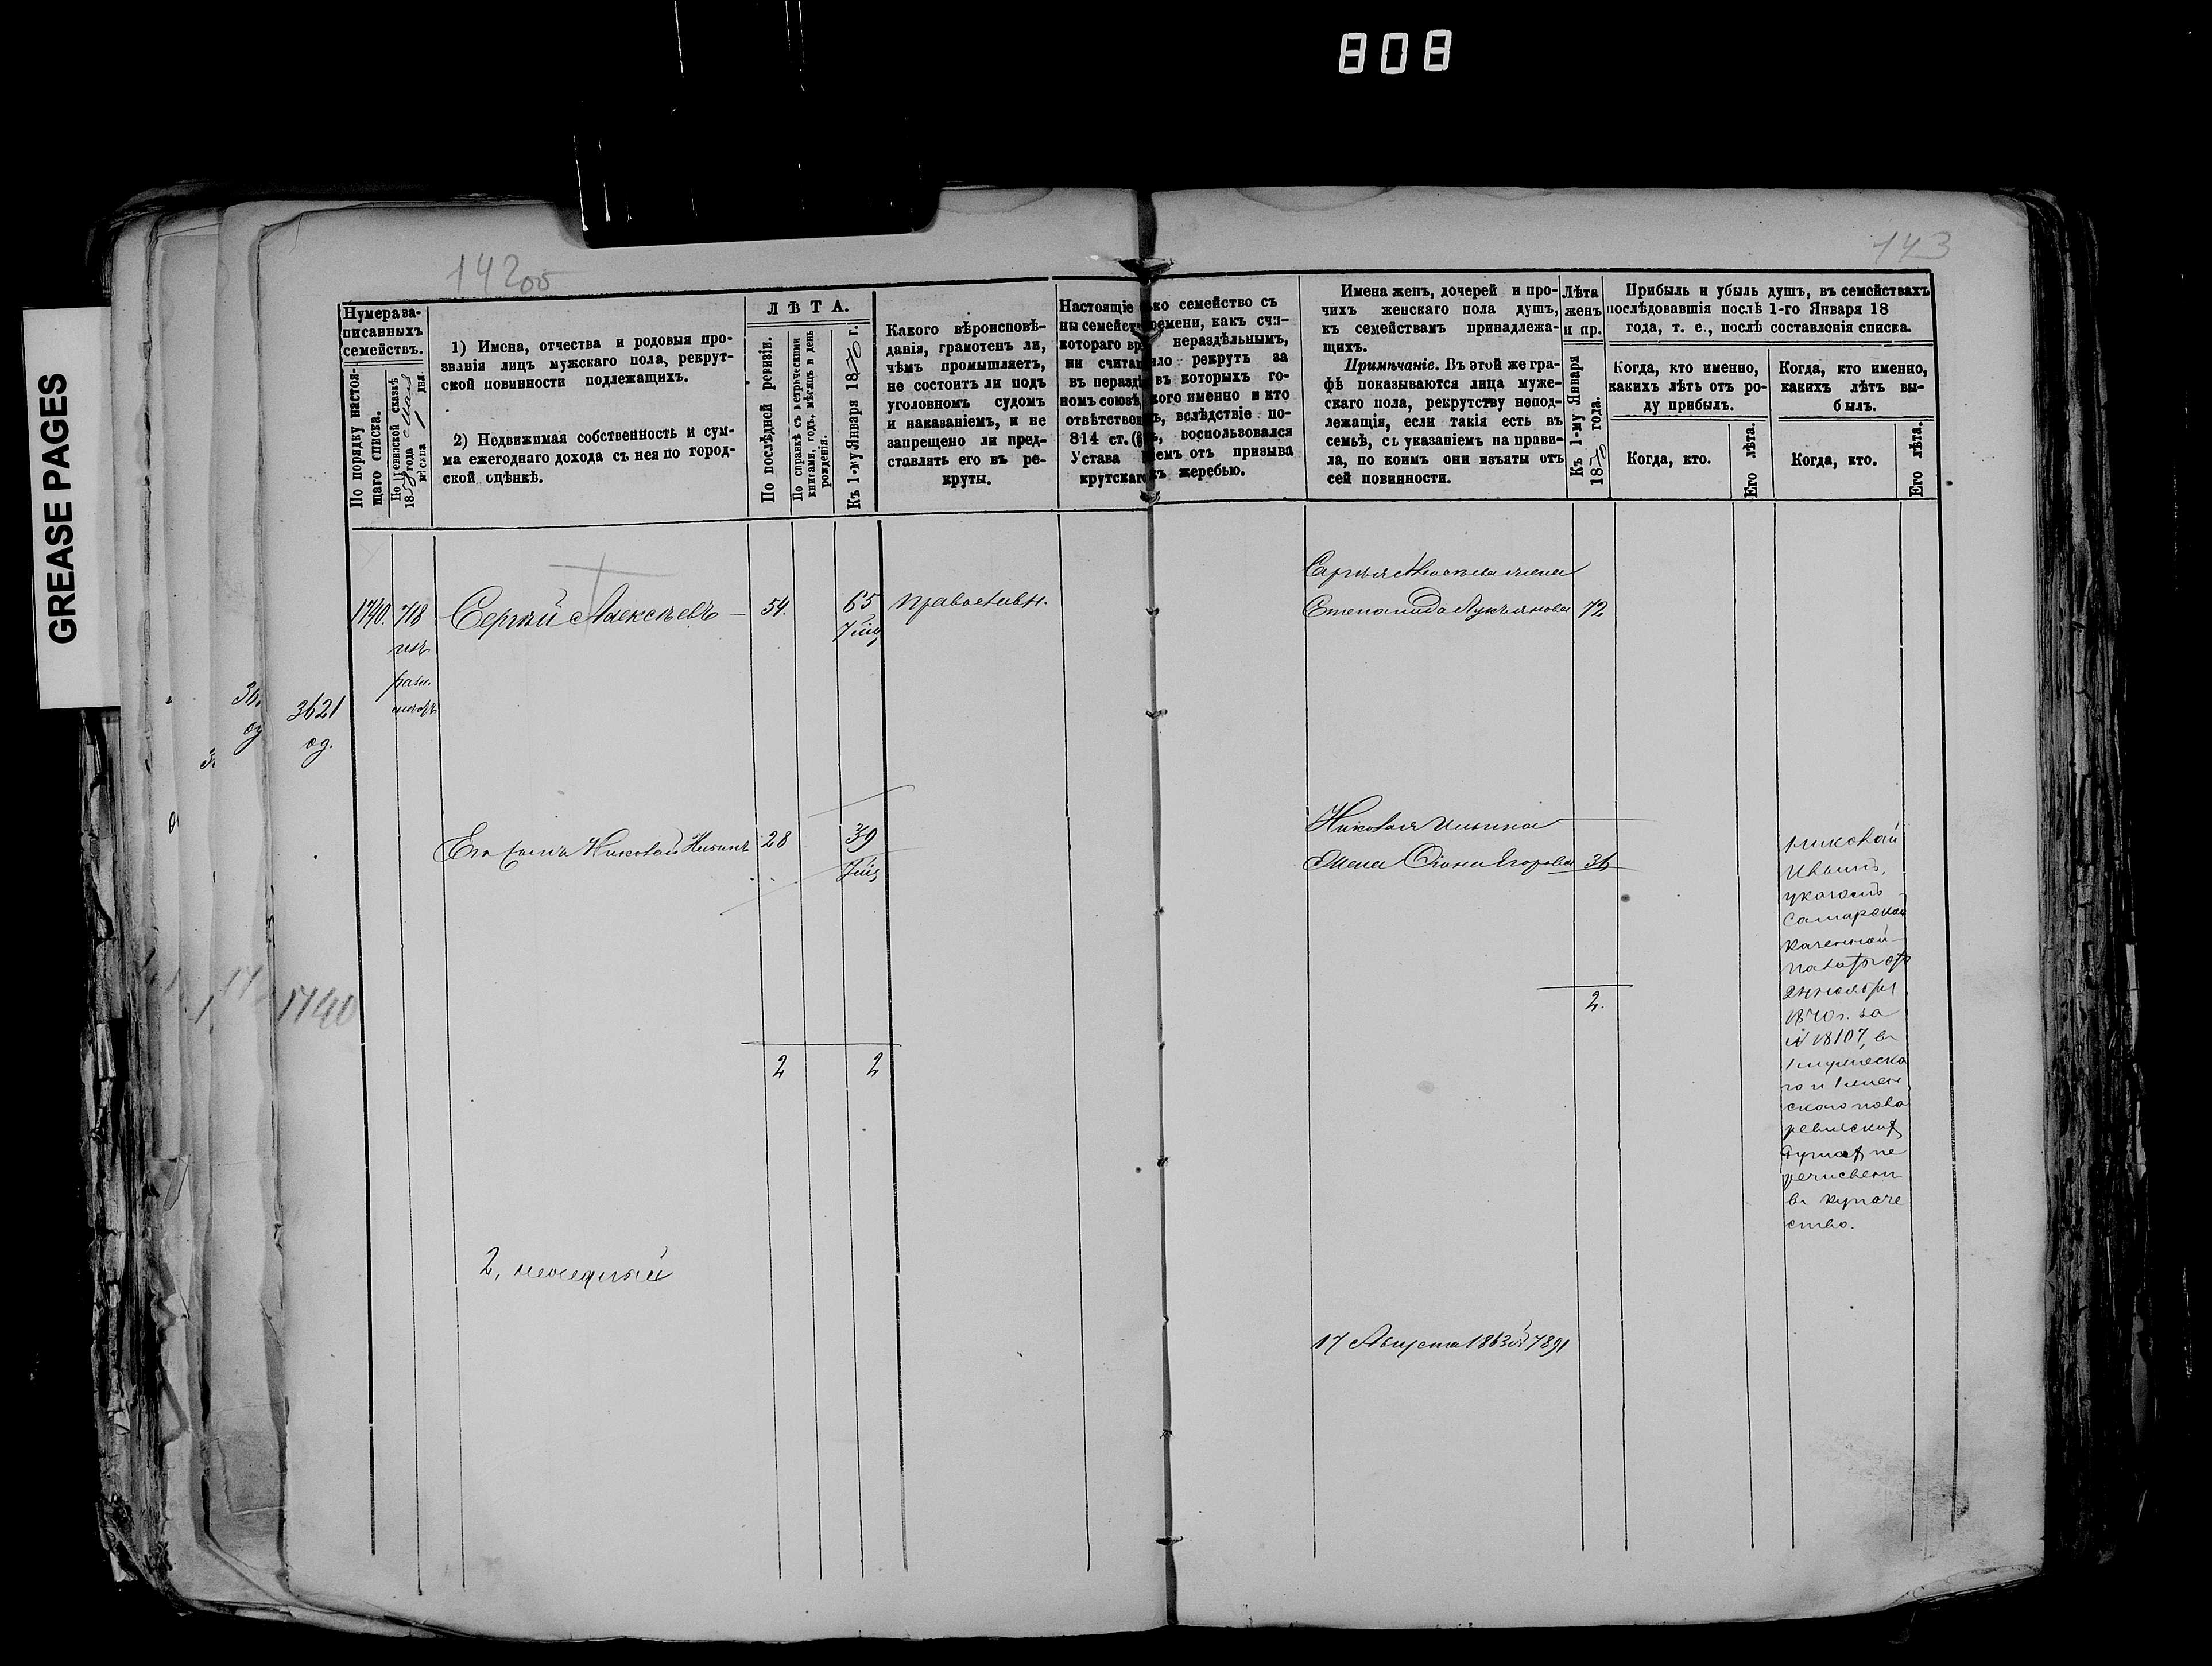 808
GREASE PAGES
14200
143
Нумера за-
писанныхъ
семействъ.
По порядку настоя-
щаго списка.
По ревизской сказкѣ
18 года
мѣсяца 1 дня.
1) Имена, отчества и родовыя про-
званія лицъ мужскаго пола, рекрут-
ской повинности подлежащихъ.
2) Недвижимая собственность и сум-
ма ежегоднаго дохода съ нея по город-
ской оцѣнкѣ.
ЛѢТА.
По послѣдней ревизіи.
По справкѣ съ метрическими
книгами, годъ, мѣсяцъ и день
рожденія.
Къ 1-му Января 1870 г.
Какого вѣроисповѣ-
данія, грамотенъ ли,
чѣмъ промышляетъ,
не состоитъ ли подъ
уголовномъ судомъ
и наказаніемъ, и не
запрещено ли пред-
ставлять его въ ре-
круты.
Настоящіе
ны семейст
котораго вр
ни считал
въ неразд
номъ союзѣ,
отвѣтствен
814 ст.
Устава
крутскаго
ко семейство съ
ремени, какъ счи-
нераздѣльнымъ,
ило рекрутъ за
въ которыхъ го-
кого именно и кто
ъ, вслѣдствіе по-
воспользовался
емъ отъ призыва
къ жеребью.
Имена женъ, дочерей и про-
чихъ женскаго пола душъ,
къ семействамъ принадлежа-
щихъ.
Примѣчаніе. Въ этой же гра-
фѣ показываются лица муже-
скаго пола, рекрутству непод-
лежащія, если такія есть въ
семьѣ, съ указаніемъ на прави-
ла, по коимъ они изъяты отъ
сей повинности.
Лѣта
женъ
и пр.
Къ 1-му Января
1870 года.
Прибыль и убыль душъ, въ семействахъ
послѣдовавшія послѣ 1-го Января 18
года, т. е., послѣ составленія списка.
Когда, кто именно,
какихъ лѣтъ отъ ро-
ду прибылъ.
Когда, кто именно,
какихъ лѣтъ вы-
былъ.
Когда, кто.
Его лѣта.
Когда, кто.
Его лѣта.
1740. 718 Сергѣй Алексѣевъ — 54. 65 православн.
Сергѣя Алексѣева жена
Степанида Лукьянова 72
3621
од.
Его сынъ Николай Ильинъ 28 39
Николая Ильина
жена Егорова 36
Николай
Ильинъ,
указомъ
Самарской
казенной
палаты отъ
24 ноября
1870 г. за
№ 18107, въ
1 мужеска
го и 1 жен
скаго пола
ревизскихъ
душах пе
речисленъ
въ купече
ство.
2.
1740
2 2
2,
17 Августа 1863 № 7891